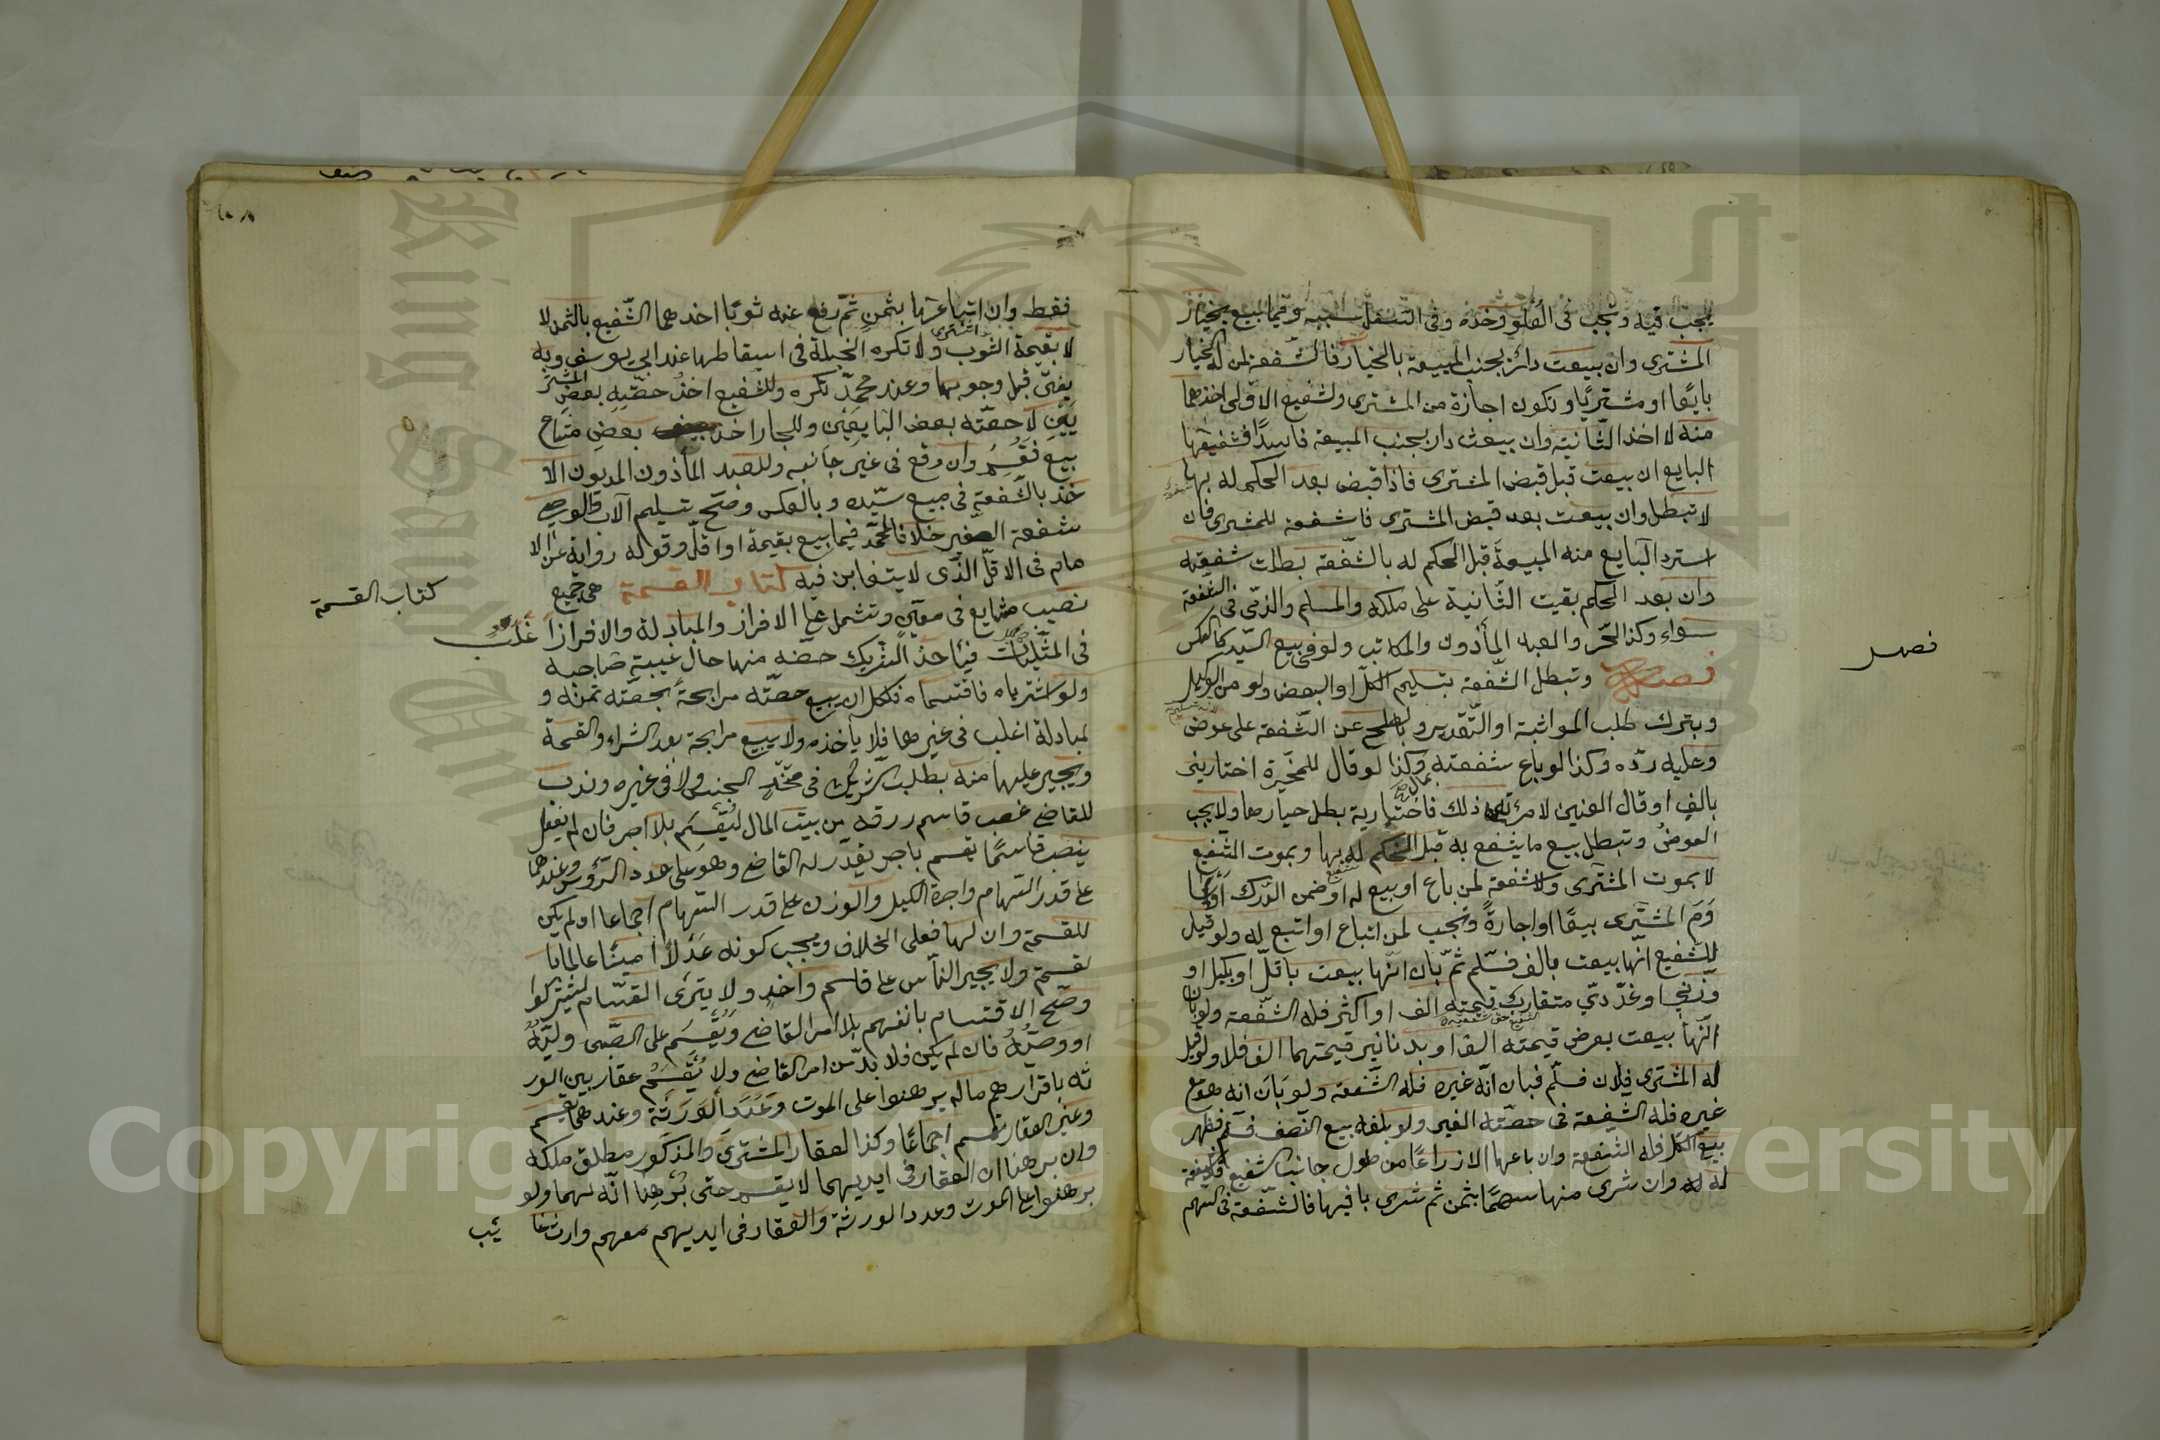 يجب فيه وتجب فى العلو وحده وفى السفل بسببه وفيما بيع بخيار
المشترى وان بيعت دار بجنب المبيعة بالخيار فالشفعة لمن له الخيار
بايعا او مشتريا وتكون اجازة من المشترى ولشفيع الاولى اخذها
منه لا اخذ الثانية وان بيعت دار بجنب المبيعة فاسدا فشفيعها
البايع ان بيعت قبل قبض المشترى فاذا قبض بعد الحكم له بها
لا تبطل وان بيعت بعد قبض المشترى فاشفعة للمشترى فان
استرد البايع منه المبيعة قبل الحكم له بالشفعة بطلت شفعته
وان بعد الحكم بقيت الثانية على ملكه والمسلم والذمى فى الشفعة
سواء وكذا الحر والعبد المأذون والمكاتب ولو فى بيع السيد كالعكس
فصل وتبطل الشفعة بتسليم الكل او البعض ولو من الوكيل
وبترك طلب المواثبة او التقرير وبالصلح عن الشفعة على عوض
وعليه رده وكذا لو باع شفعته بمال وكذا لو قال للمخيرة اختارينى
بالف او قال العنين لامرأته ذلك فاختارته بطل خيارها ولا يجب
العوض وتبطل ببيع ما يشفع به قبل الحكم له بها وبموت الشفيع
لا بموت المشترى ولا شفعة لمن باع او بيع له او ضمن الدرك او سا
وم المشترى بيعا او اجارة وتجب لمن ابتاع او ابتيع له ولو قيل
للشفيع انها بيعت بالف فسلم ثم بان انها بيعت باقل او بكيلى او
وزنى او عددى متقارب قيمته الف او اكثر فله الشفعة ولو بان
انها بيعت بعرض قيمته الف او بدنانير قيمتها الف فلا ولو قيل
له المشترى فلان فسلم فبان انه غيره فله الشفعة ولو بان انه هو مع
غيره فله الشفعة فى حصة الغير ولو بلغه بيع النصف فسلم فظهر
بيع الكل فله الشفعة وان باعها الا ذراعا من طول جانب الشفيع فلا شفعة
له وان شرى منها سهما بثمن ثم شرى باقيها فالشفعة فى السهم
فصل
فقط وان ابتاعها بثمن ثم دفع عنه ثوبا اخذها الشفيع بالثمن لا
لا بقيمة الثوب ولا تكره الحيلة فى اسقاطها عند ابى يوسف وبه
يفتى قبل وجوبها وعند محمد تكره وللشفيع اخذ حصة بعض المشتر
يين لا حصة بعض البايعين وللجار اخذ بعض متاع
بيع فقسم وان وقع فى غير جانبه وللعبد المأذون المديون الا
خذ بالشفعة فى مبيع سيده وبالعكس وصح تسليم الاب والوصى
شفعة الصغير خلافا لمحمد فيما بيع بقيمة او اقل وقوله رواية عن الا
مام فى الاقل الذى لا يتغابن فيه كتاب القسمة هى جميع
نصيب شايع فى معين وتشتمل على الافراز والمبادلة والافراز اغلب
فى المثليات فيأخذ الشريك حصته منها حال غيبة صاحبه
ولو اشترياه فاقتسماه فلكل ان يبيع حصته مرابحة بحصة ثمنه و
لمبادلة اغلب فى غيرها فلا يأخذه ولا يبيع مرابحة بعد الشراء والقسمة
ويجبر عليها منه بطلب الشريك فى متحد الجنس ولا فى غيره وندب
للقاضى نصب قاسم رزقه من بيت المال ليقسم بلا اجر فان لم يفعل
ينصب قاسما يقسم باجر يقدره له القاضى وهو على عدد الرؤس وعندهما
على قدر السهام واجرة الكيل والوزن على قدر السهام اجماعا ان لم يكن
للقسمة وان لها فعلى الخلاف ويجب كونه عدلا امينا عالما با
لقسمة ولا يجبر الناس على قاسم واحد ولا يترك القسام ليشتركوا
وصح الاقتسام بانفسهم بلا امر القاضى ويقسم على الصبى وليه
او وصيه فان لم يكن فلا بد من امر القاضى ولا يقسم عقار بين الور
ثة باقرارهم ما لم يبرهنوا على الموت وعدد الورثة وعندهما يقسم
وغير العقار يقسم اجماعا وكذا العقار المشترى والمذكور مطلق ملكه
وان برهنا ان العقار فى ايديهما لا يقسم حتى يبرهنا انه لهما ولو
برهنوا على الموت وعدد الورثة والعقار فى ايديهم معهم وارث غا
ئب
كتاب القسمة